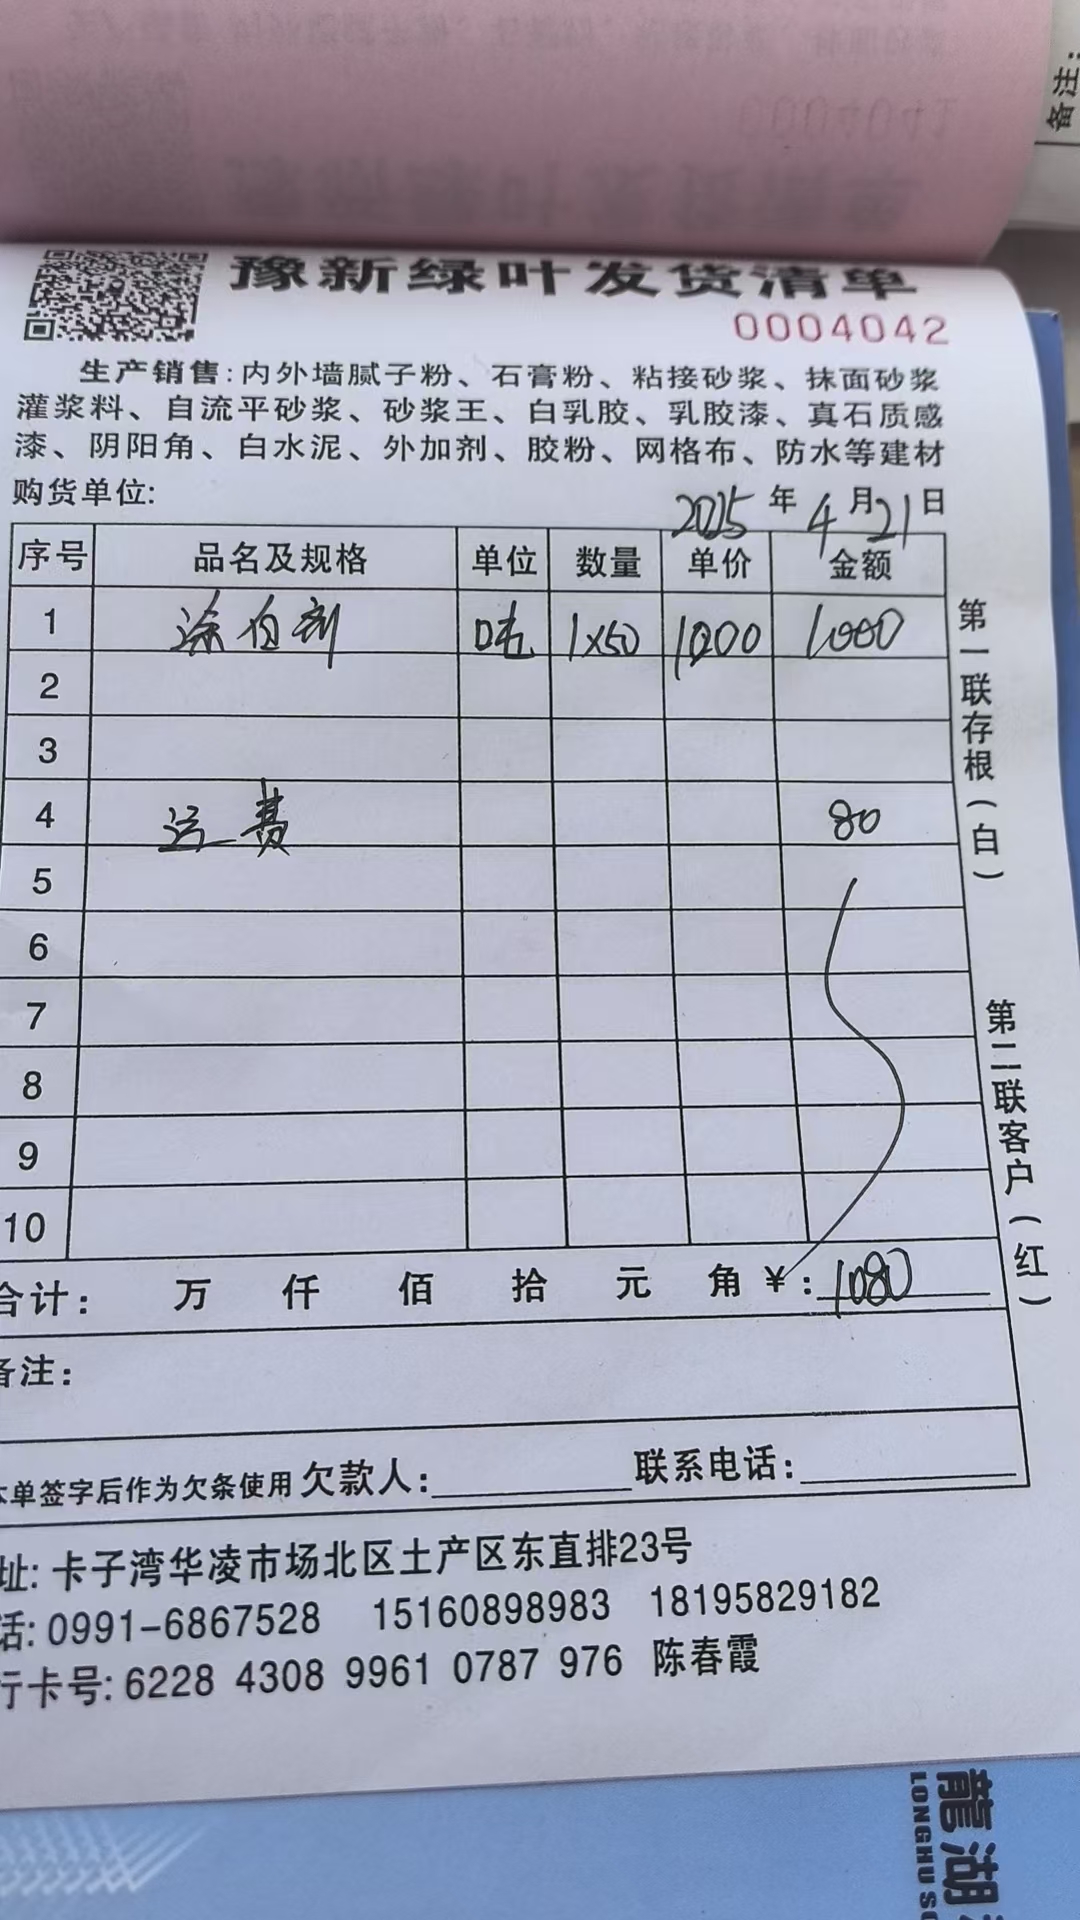 备注:
0004041
豫新绿叶发货清单
0004042
生产销售:内外墙腻子粉、石膏粉、粘接砂浆、抹面砂浆
灌浆料、自流平砂浆、砂浆王、白乳胶、乳胶漆、真石质感
漆、阴阳角、白水泥、外加剂、胶粉、网格布、防水等建材
购货单位: 2025年4月21日
序号 品名及规格 单位 数量 单价 金额
1 涂伯剂 吨 1x50 1000 1000
2
3
4 运费 80
5
6
7
8
9
10
合计: 万 仟 佰 拾 元 角 ¥:1080
备注:
本单签字后作为欠条使用 欠款人: 联系电话:
址:卡子湾华凌市场北区土产区东直排23号
话:0991-6867528 15160898983 18195829182
行卡号:6228 4308 9961 0787 976 陈春霞
第一联存根(白)
第二联客户(红)
龍湖
LONGHU